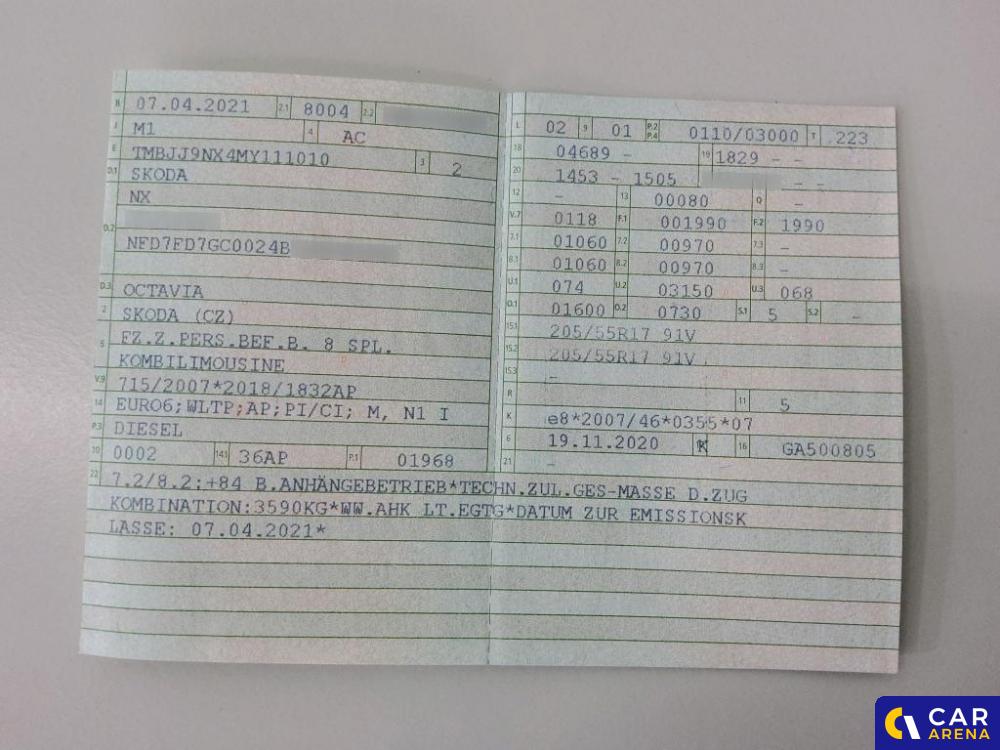 B 07.04.2021 2.1 8004 2.2
J M1 4 AC
E TMBJJ9NX4MY111010 3 2
D.1 SKODA
NX
D.2
NFD7FD7GC0024B
D.3 OCTAVIA
2 SKODA (CZ)
5 FZ.Z.PERS.BEF.B. 8 SPL.
KOMBILIMOUSINE
V.9 715/2007*2018/1832AP
14 EURO6;WLTP;AP;PI/CI; M, N1 I
P.3 DIESEL
10 0002 14.1 36AP P.1 01968
L 02 9 01 P.2 P.4 0110/03000 T 223
18 04689 - 19 1829 - -
20 1453 - 1505 - -
12 - 13 00080 Q -
V.7 0118 F.1 001990 F.2 1990
7.1 01060 7.2 00970 7.3 -
8.1 01060 8.2 00970 8.3 -
U.1 074 U.2 03150 U.3 068
O.1 01600 O.2 0730 S.1 5 S.2 -
15.1 205/55R17 91V
15.2 205/55R17 91V
15.3 -
R 11 5
K e8*2007/46*0355*07
6 19.11.2020 K 16 GA500805
21 -
22 7.2/8.2:+84 B.ANHÄNGEBETRIEB*TECHN.ZUL.GES-MASSE D.ZUG
KOMBINATION:3590KG*WW.AHK LT.EGTG*DATUM ZUR EMISSIONSK
LASSE: 07.04.2021*
CAR
ARENA